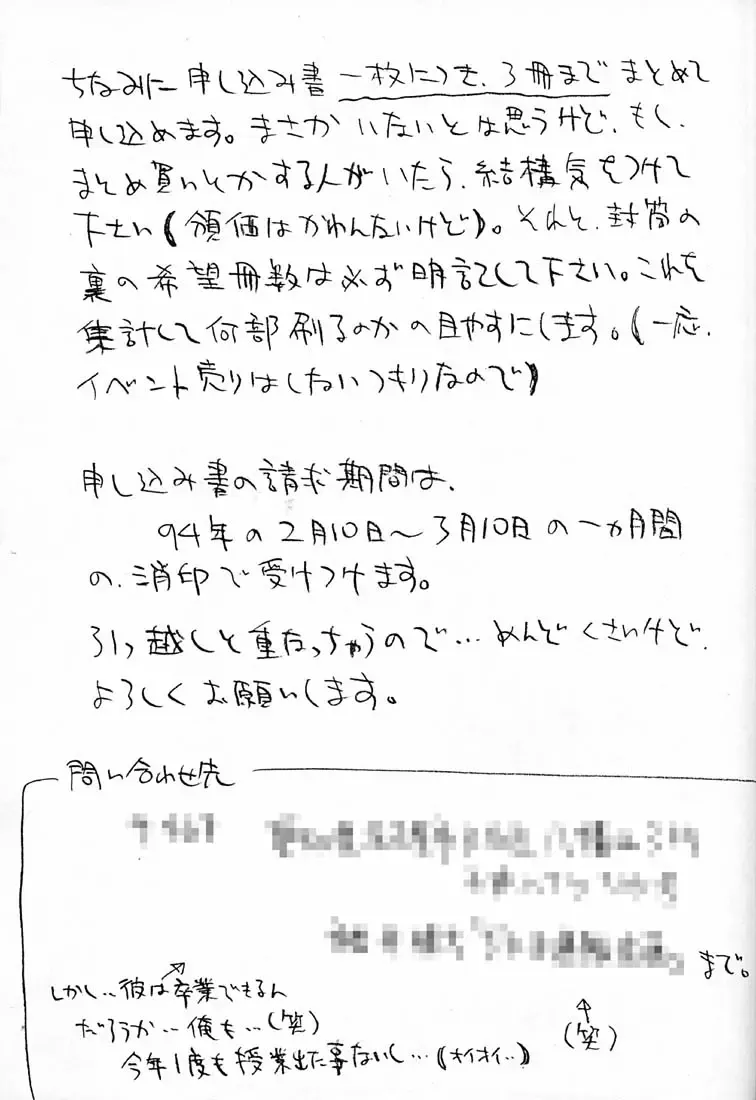 ちなみに申し込み書一枚につき、3冊までまとめて
申し込めます。まさかいないとは思うけど、もし、
まとめ買いとかする人がいたら、結構気をつけて
下さい(領価はかわんないけど)。それと、封筒の
裏の希望冊数は必ず明記して下さい。これを
集計して何部刷るのかの目やすにします。(一応、
イベント売りはしないつもりなので)
申し込み書の請求期間は、
94年の2月10日〜3月10日の一ヵ月間
の、消印で受けつけます。
引っ越しと重なっちゃうので…めんどくさいけど、
よろしくお願いします。
問い合わせ先
まで。
しかし‥彼は卒業できるん
だろうか‥俺も‥(笑)
(笑)
今年1度も授業出た事ないし…(オイオイ‥)